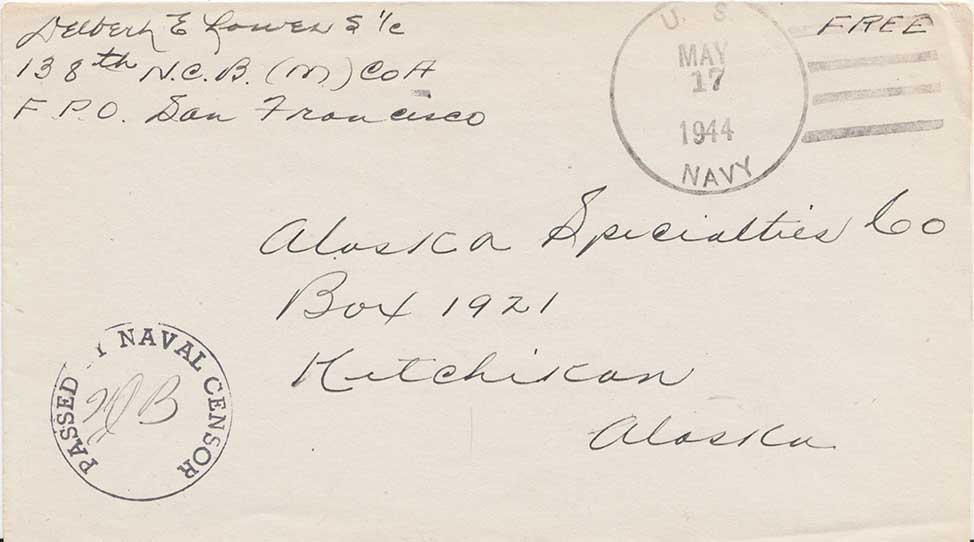 Delbert E Lowen S 1/c
138th N.C.B. (M.) Co A
F.P.O. San Francisco
FREE
U. S.
MAY
17
1944
NAVY
Alaska Specialties Co
Box 1921
Ketchikan
Alaska
PASSED Y NAVAL CENSOR